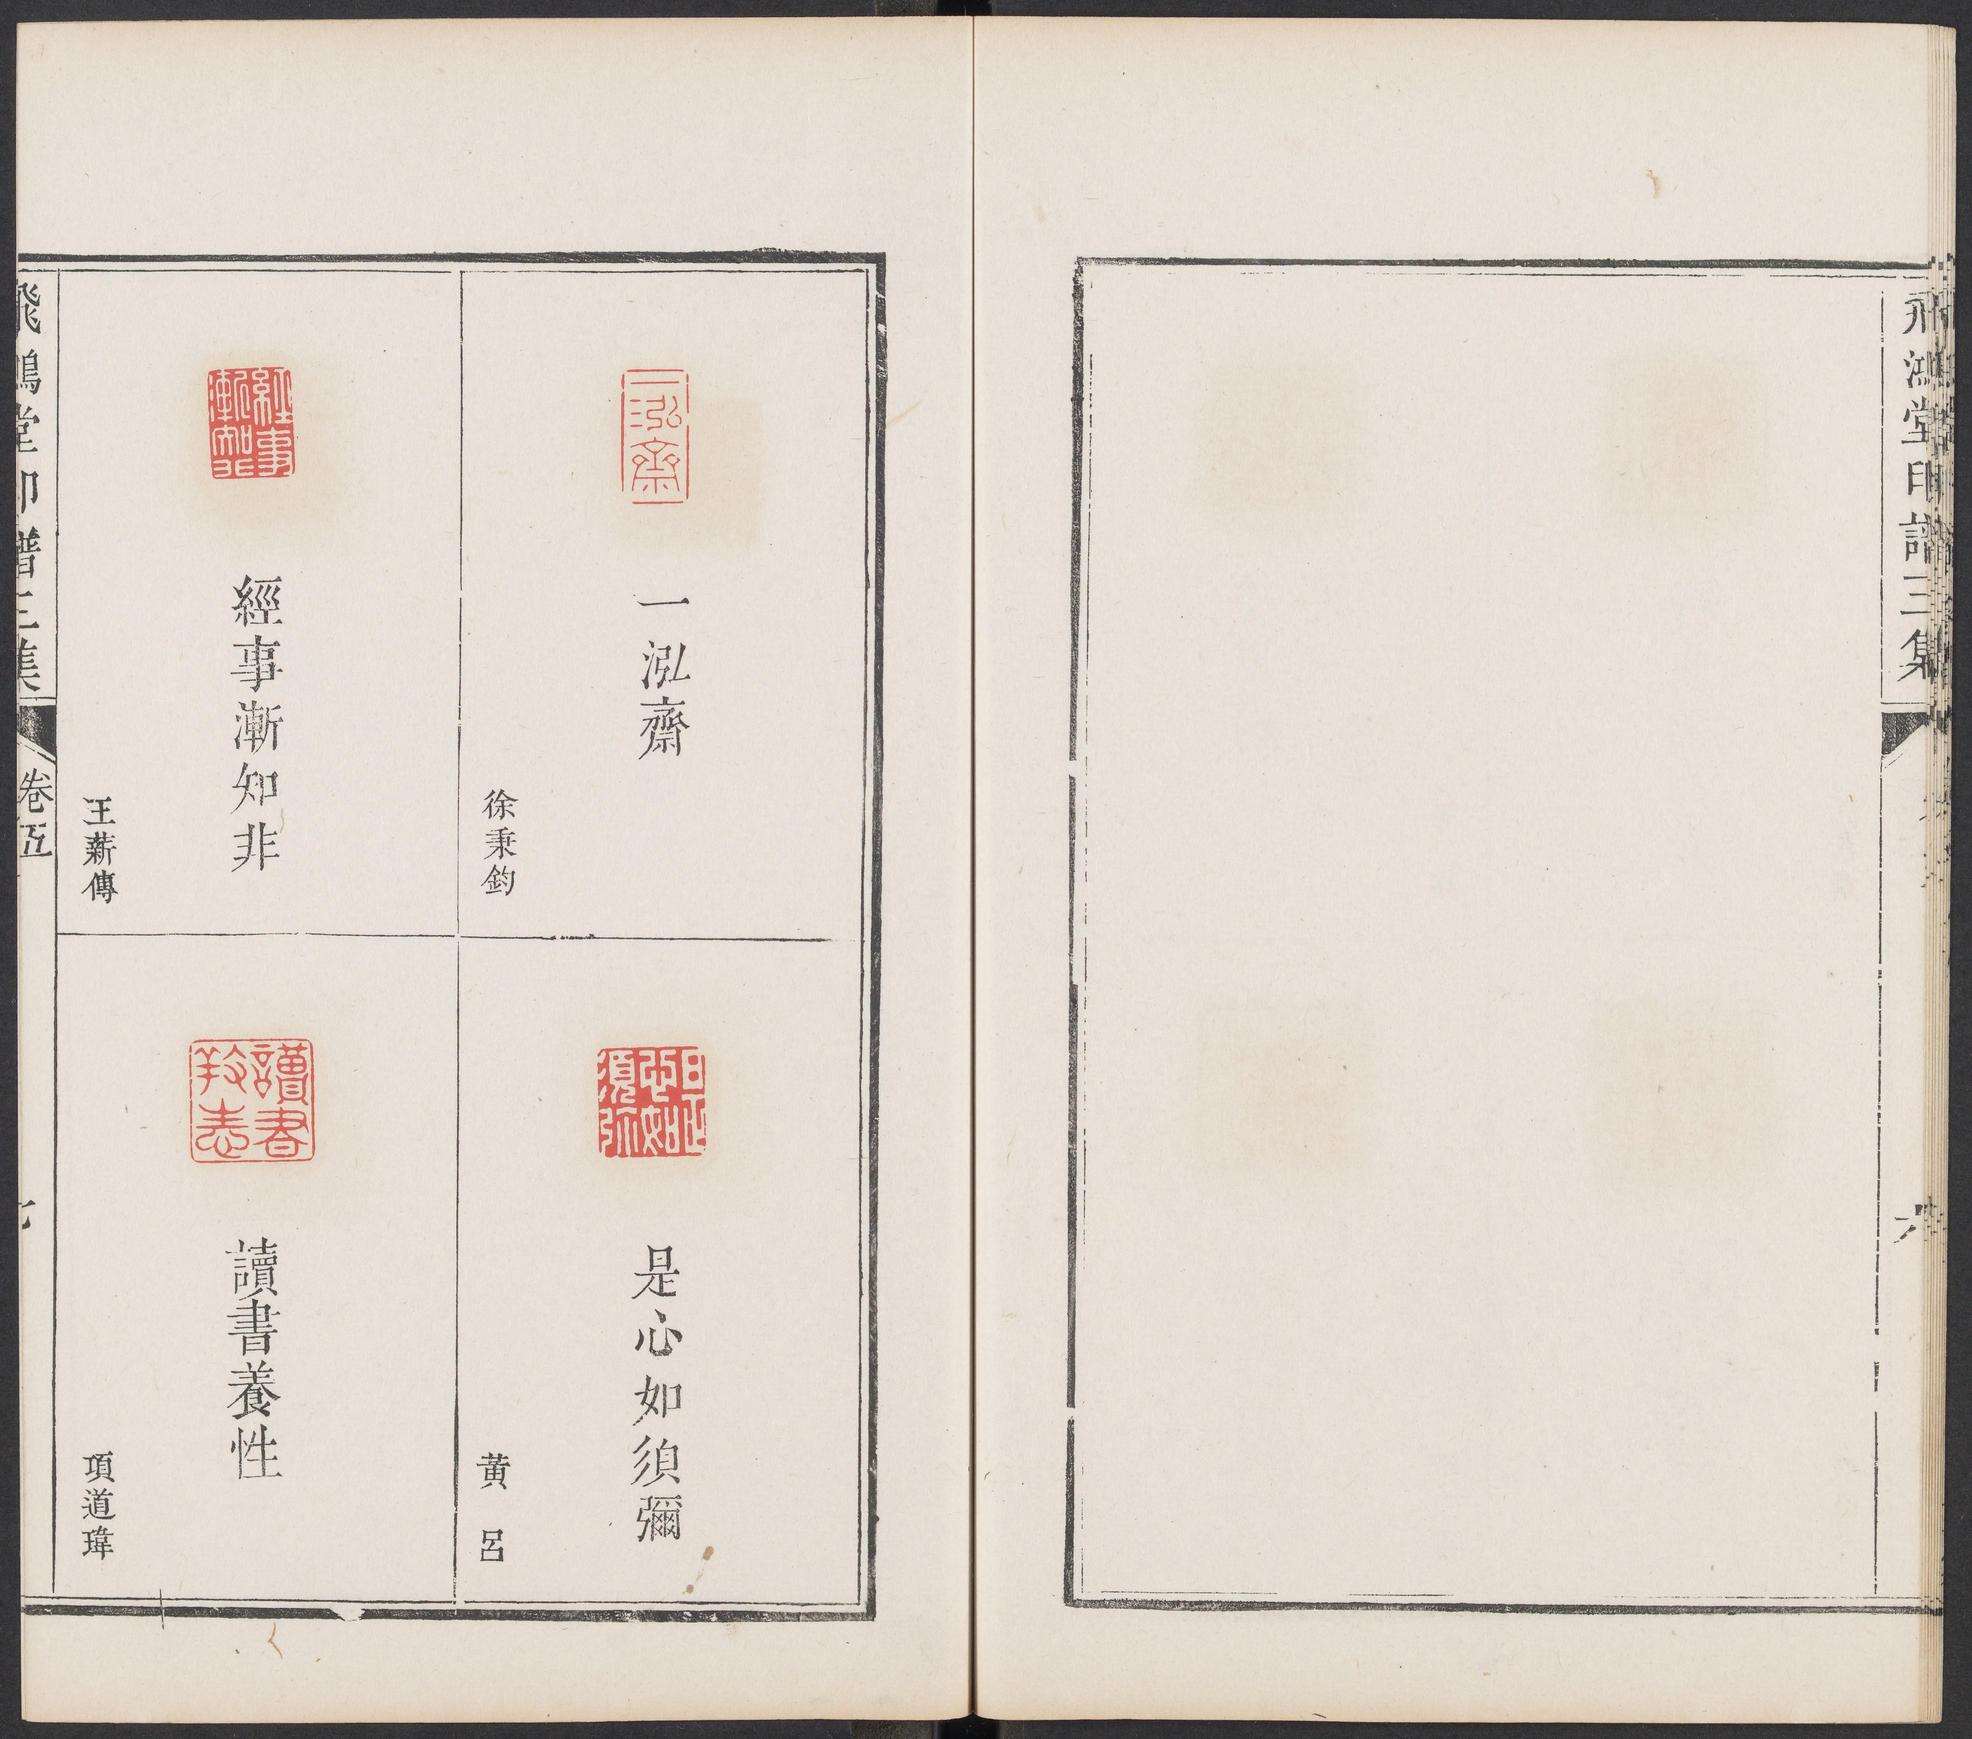 飛鴻堂印譜三集
六
一泓齋
一泓齋
徐秉鈞
是心如須彌
是心如須彌
黃呂
經事漸知非
經事漸知非
王薪傳
讀書養性
讀書養性
項道瑋
飛鴻堂印譜三集
卷五
七